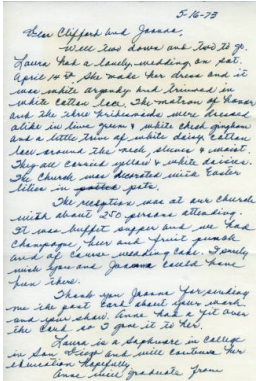 5-16-73
Dear Clifford and Joanna,
Well two down and two to go.
Laura had a lovely wedding on Sat.
April 14th. She made her dress and it
was white organdy and trimmed in
white cotton lace. The matron of honor
and the three bridesmaids were dressed
alike in lime green & white check gingham
and a little trim of white daisy cotton
lace around the neck, sleeves & waist.
They all carried yellow & white daisies.
The Church was decorated with Easter
lilies in potted pots.
The reception was at our church
with about 250 persons attending.
It was buffet supper and we had
champagne, beer and fruit punch
and of course wedding cake. I surely
wish you and Joanna could have
been there.
Thank you Joanna for sending
me the post card about your work
and your show. Anne had a fit over
the card so I gave it to her.
Laura is a Sophmore in college
in San Diego and will continue her
education hopefully.
Anne will graduate from